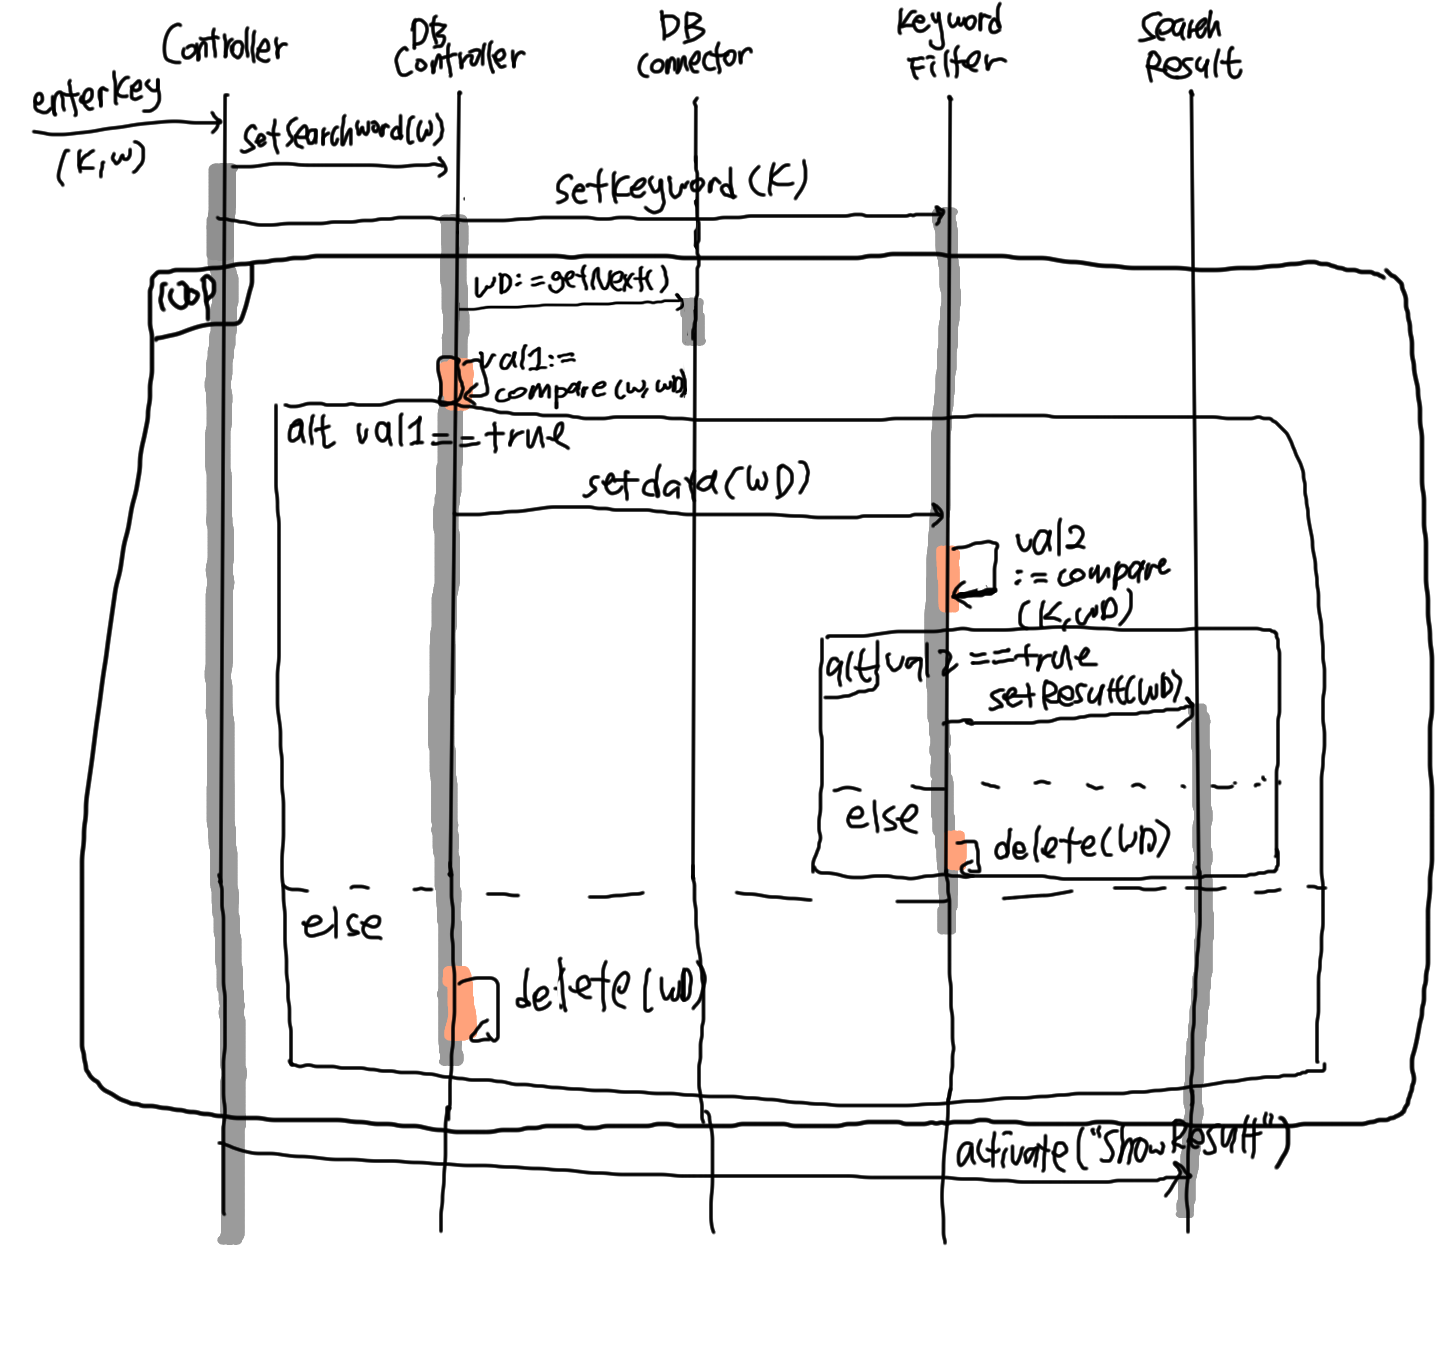 Controller
DB
Controller
DB
Connector
Keyword
Filter
Search
Result
enterkey
(K,w)
setSearchword(w)
setkeyword(K)
loop
WD:=getNext()
val1:=
compare(w,wD)
alt val1==true
setdata(WD)
val2
:=compare
(K,WD)
alt val2==true
setResult(WD)
else
delete(WD)
else
delete(WD)
activate("ShowResult")